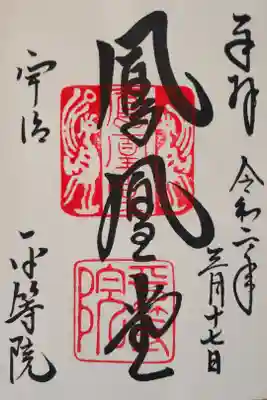 奉拝
令和六年
三月十七日
鳳凰堂
鳳凰堂
平等院
宇治
平等院